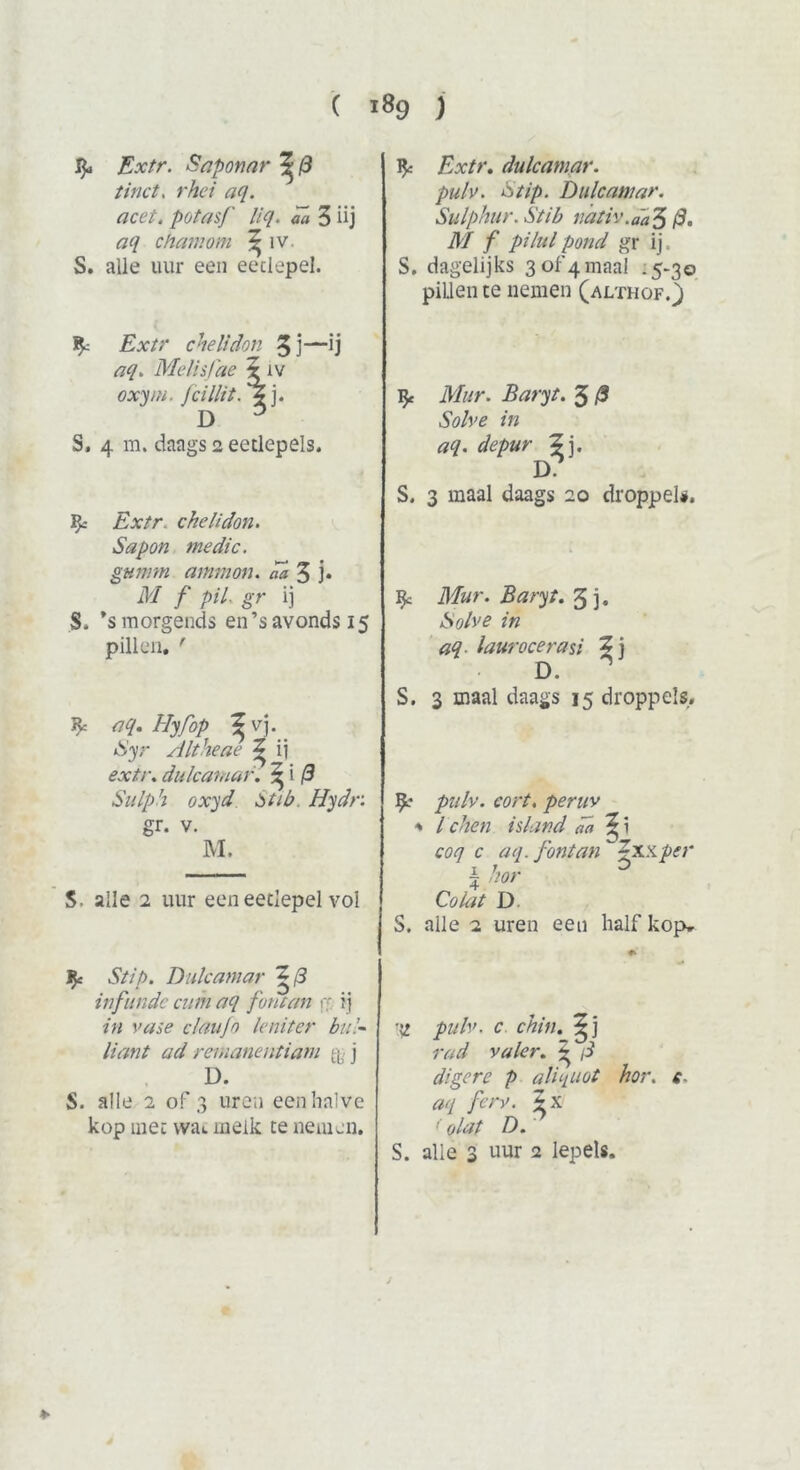 ( 189 )
℞ Extr. Saponar ℥ β
tinct. rhei aq.
acet. potasſ liq. aa ʒ iij
aq chamom ℥ iv.
S. alle uur een eetlepel.
℞ Extr chelidon ʒ j—ij
aq. Melisſae ℥ iv
oxym. ſcillit. ℥ j.
D
S. 4 m. daags 2 eetlepels.
℞ Extr. chelidon.
Sapon medic.
gumm ammon. aa ʒ j.
M f pil. gr ij
S. 's morgends en 's avonds 15
pillen.
℞ aq. Hyſop ℥ vj.
Syr Altheae ℥ ij
extr. dulcamar. ℥ i β
Sulph oxyd Stib. Hydr:
gr. v.
M.
S. alle 2 uur een eetlepel vol
℞ Stip. Dulcamar ℥ β
infunde cum aq fontan ij
in vase clauſo leniter bul-
liant ad remanentiam j
D.
S. alle 2 of 3 uren een halve
kop met wat melk te nemen.
℞ Extr. dulcamar.
pulv. Stip. Dulcamar.
Sulphur. Stib nativ. aa ʒ β.
M f pilul pond gr ij.
S. dagelijks 3 of 4 maal 15-30
pillen te nemen (ALTHOF.)
℞ Mur. Baryt. ʒ β
Solve in
aq. depur ℥ j.
D.
S. 3 maal daags 20 droppels.
℞ Mur. Baryt. ʒ j.
Solve in
aq. laurocerasi ℥ j
D.
S. 3 maal daags 15 droppels.
℞ pulv. cort. peruv
l chen island aa ℥ i
coq c aq. fontan ℥ xx per
¼ hor
Colat D.
S. alle 2 uren een half kop.
℞ pulv. c. chin. ℥ j
rad valer. ℥ β
digere p aliquot hor. c.
aq ferv. ℥ x
olat D.
S. alle 3 uur 2 lepels.